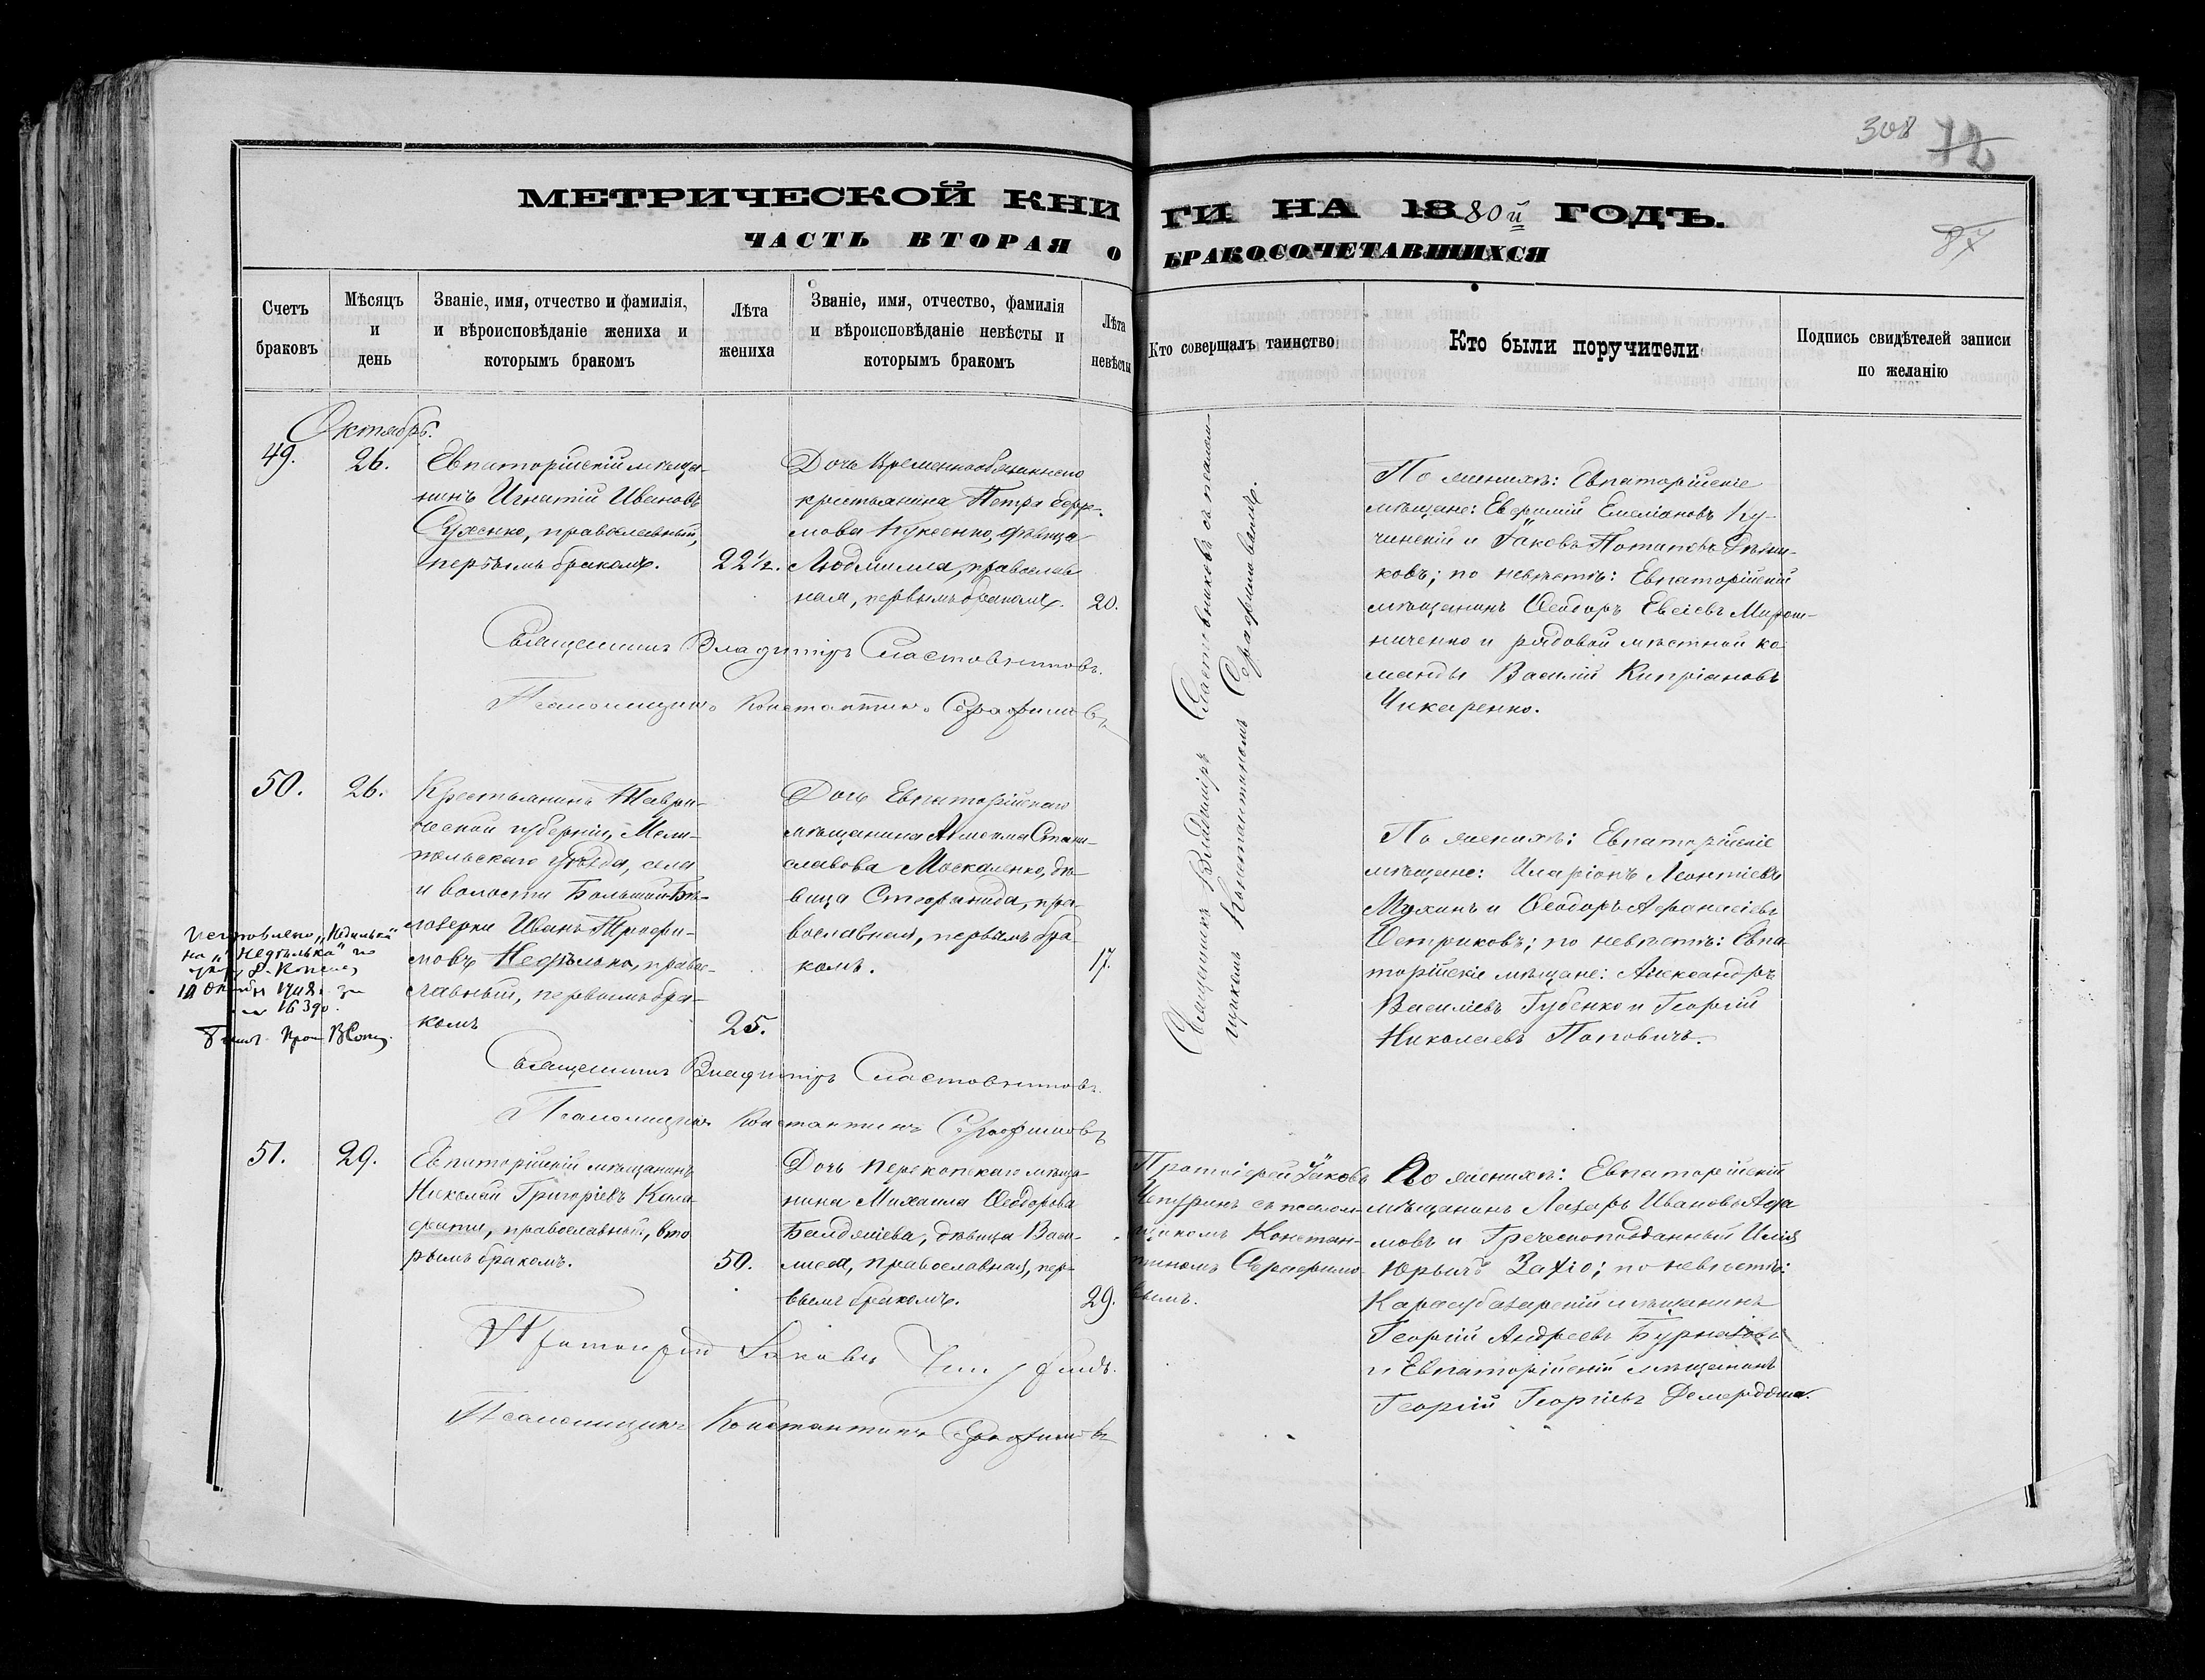 308 72
87
МЕТРИЧЕСКОЙ КНИГИ НА 1880й ГОДЪ.
ЧАСТЬ ВТОРАЯ О БРАКОСОЧЕТАВШИХСЯ
Счетъ браковъ
Мѣсяцъ и день
Званіе, имя, отчество и фамилія, и вѣроисповѣданіе жениха и которымъ бракомъ
Лѣта жениха
Званіе, имя, отчество, фамилія и вѣроисповѣданіе невѣсты и которымъ бракомъ
Лѣта невѣсты
Кто совершалъ таинство
Кто были поручители
Подпись свидѣтелей записи по желанію
Октябрь.
49.
26.
Евпаторійскій мѣща-
нинъ Игнатій Ивановъ
Сухенко, православный,
первымъ бракомъ.
22½.
Дочь временнообязаннаго
крестьянина Петра Ефре-
мова Куксенко, дѣвица
Людмила, православ
ная, первымъ бракомъ.
20.
Священникъ Владиміръ Сластовниковъ съ псалом-
щикомъ Константиномъ Серафимовымъ.
По женихѣ: Евпаторійскіе
мѣщане: Евфимій Емеліановъ Ку-
чинскій и Іаковъ Потаповъ
ковъ; по невѣстѣ: Евпаторійскій
мѣщанинъ Ѳеодоръ Евсіевъ Мирош-
ниченко и рядовой мѣстной ко
манды Василій Кипріановъ
Чикаренко.
Священникъ Владиміръ Сластовниковъ.
Псаломщикъ Константинъ Серафимовъ
50.
26.
Крестьянинъ Таври-
ческой губерніи, Мели-
польскаго уѣзда, села
и волости Большой Бѣ-
лозерки Иванъ Трофи-
мовъ Недѣлько, право-
славный, первымъ бра-
комъ
25.
Дочь Евпаторійскаго
мѣщанина Стани-
славова Москаленко, дѣ-
вица Стефанида, пра-
вославная, первымъ бра
комъ.
17.
По женихѣ: Евпаторійскіе
мѣщане: Иларіонъ Леонтіевъ
Мухинъ и Ѳеодоръ Аѳанасіевъ
Остриковъ; по невѣстѣ: Евпа-
торійскіе мѣщане: Александръ
Василіевъ Губенко и Георгій
Николаевъ Поповичъ.
на „Недѣлька" по
Священникъ Владиміръ Сластовниковъ.
Псаломщикъ Константинъ Серафимовъ
51.
29.
Евпаторійскій мѣщанинъ
Николай Григоріевъ Кала-
фати, православный, вто
рымъ бракомъ.
50.
Дочь Перекопскаго мѣща-
нина Михаила Ѳеодорова
дѣвица Васи-
лиса, православная, пер-
вымъ бракомъ.
29.
Протоіерей Іаковъ
Чепуринъ съ псалом-
щикомъ Констан-
тиномъ Серафимо-
вымъ.
По женихѣ: Евпаторійскій
мѣщанинъ Лазарь Ивановъ Ада
мовъ и Греческоподданный Илія
Юрьичъ по невѣстѣ:
Карасубазарскій мѣщанинъ
Георгій Андреевъ
и Евпаторійскій мѣщанинъ
Георгій Георгіевъ
Протоіерей Іаковъ Чепуринъ.
Псаломщикъ Константинъ Серафимовъ